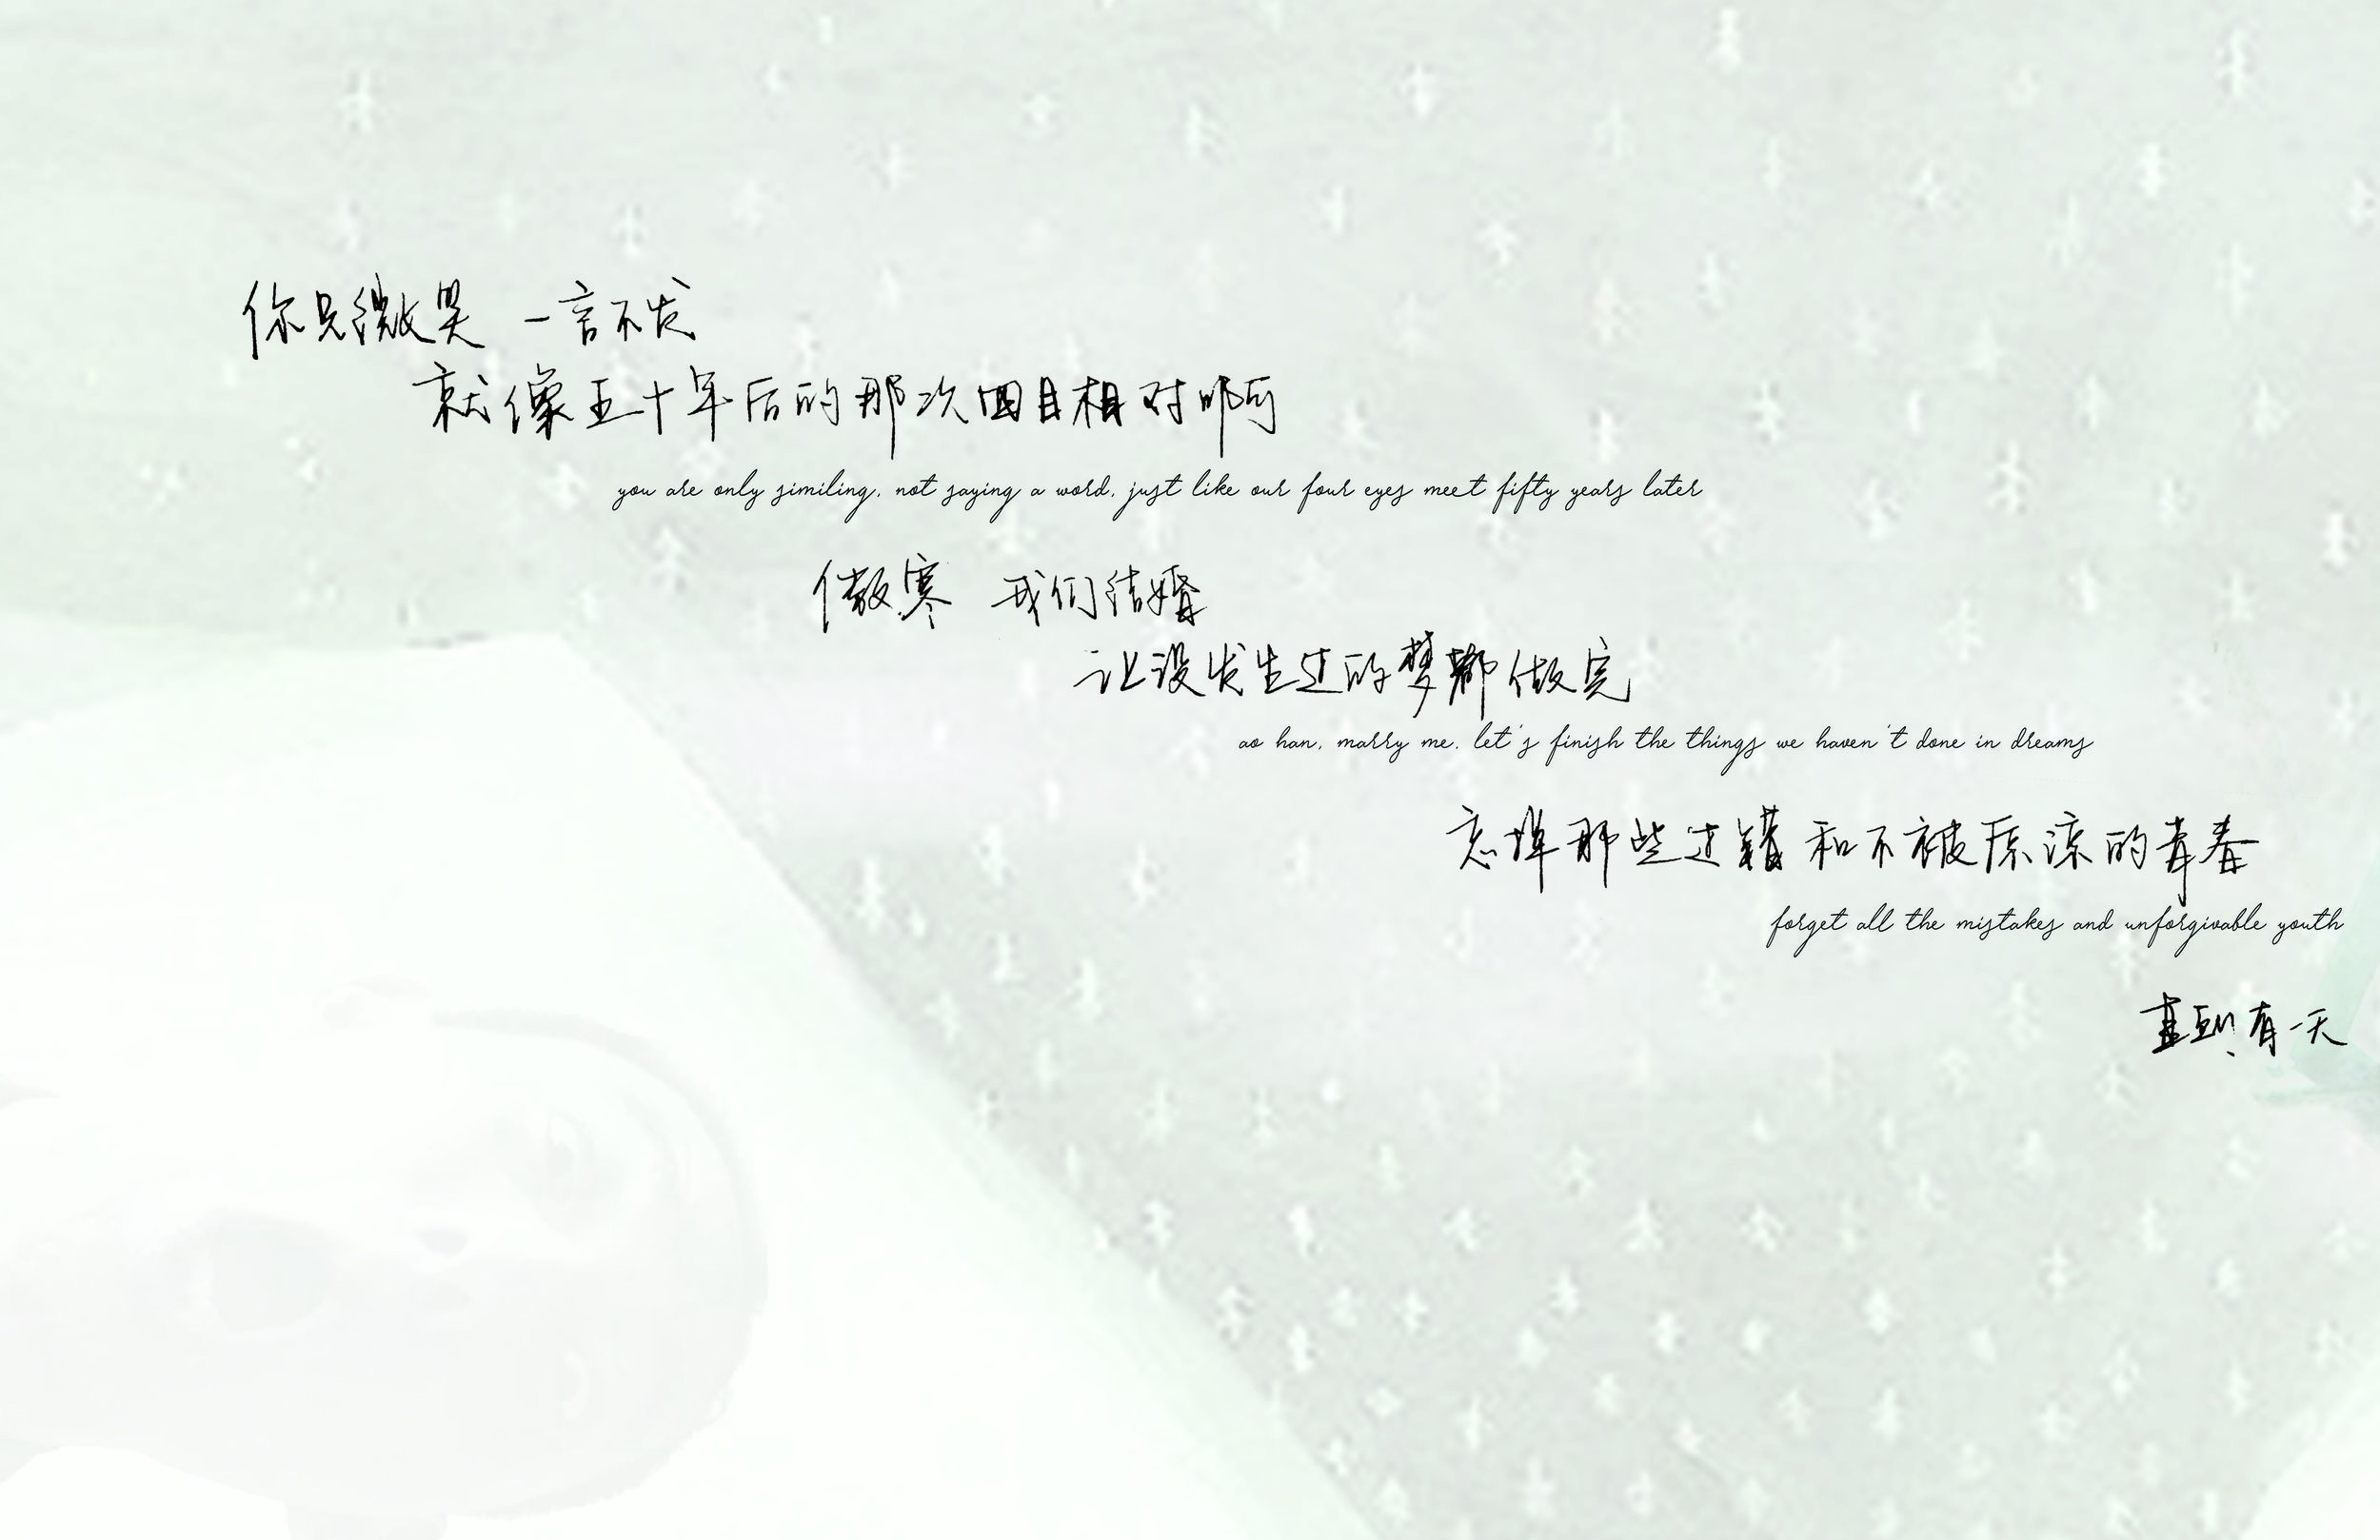 你只微笑 一言不发
就像五十年后的那次四目相对啊
you are only similing, not saying a word, just like our four eyes meet fifty years later
傲寒 我们结婚
让没发生过的梦都做完
ao han, marry me, let's finish the things we haven't done in dreams
忘掉那些过错和不被原谅的青春
forget all the mistakes and unforgivable youth
直到有一天